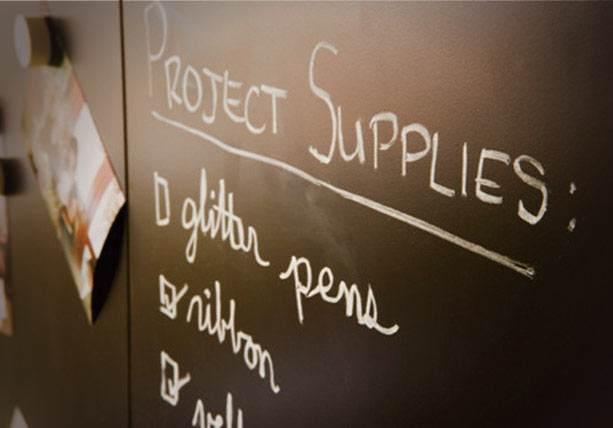 PROJECT SUPPLIES:
☐ glitter pens
☑ ribbon